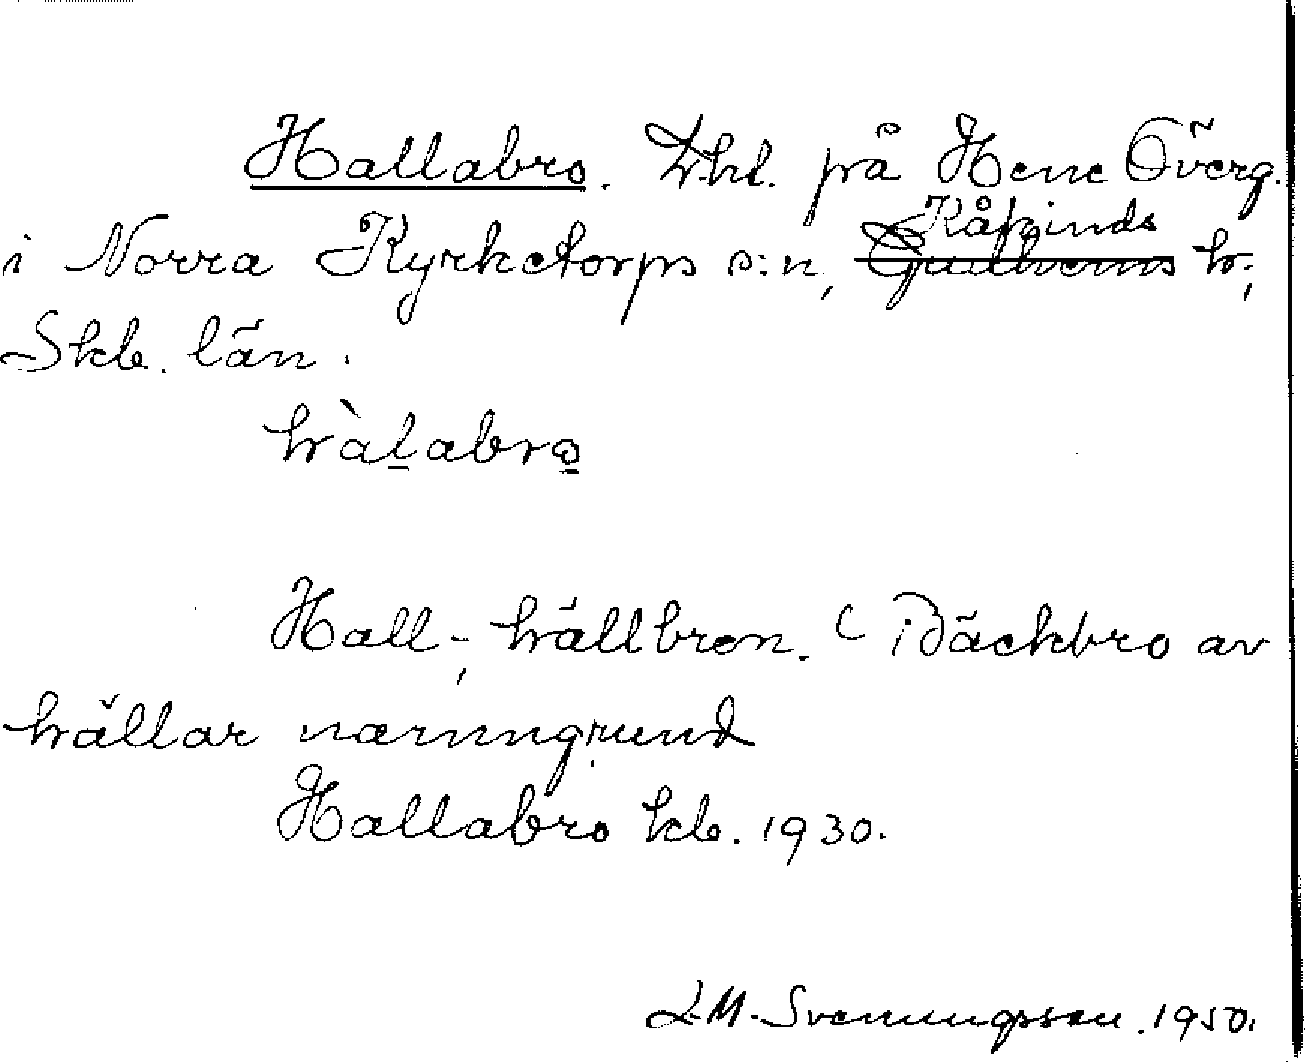 Hallabro. Lhl. på Hene Överg.
Kåkinds
i Norra Kyrketorps s:n, Gudhems h;
Skb. län.
hàḻabro̲
Hall-, hällbron. Bäckbro av
hällar namngrund
Hallabro kb. 1930.
L.M. Svenungsson. 1950.